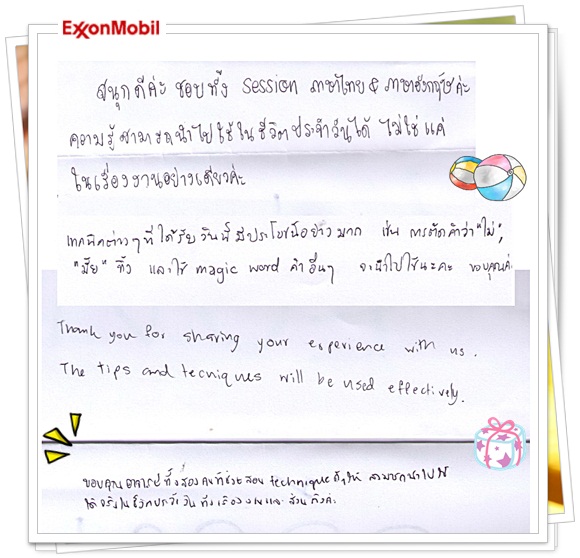 ExxonMobil
สนุกดีค่ะ ชอบทั้ง session ภาษาไทย & ภาษาอังกฤษค่ะ
ความรู้สามารถนำไปใช้ในชีวิตประจำวันได้ ไม่ใช่แค่
ในเรื่องงานอย่างเดียวค่ะ
เทคนิคต่างๆที่ได้รับวันนี้มีประโยชน์อย่างมาก เช่น การตัดคำว่า "ไม่",
"มั้ย" ทิ้ง และใช้ magic word คำอื่นๆ จะนำไปใช้นะคะ ขอบคุณค่ะ
Thank you for sharing your experience with us.
The tips and tecniques will be used effectively.
ขอบคุณ อาจารย์ทั้งสองคนที่ช่วยสอน technique สามารถนำไปใช้
ได้จริงในชีวิตประจำวัน ทั้งเรื่องงานและส่วนตัวค่ะ